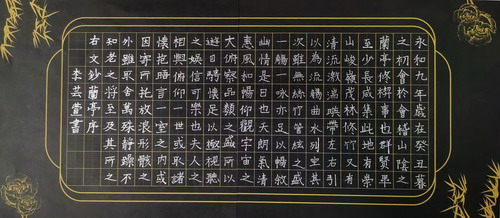 永和九年歲在癸丑暮
之初會於會稽山陰之
蘭亭修禊事也群賢畢
至少長咸集此地有崇
山峻嶺茂林修竹又有
清流激湍映帶左右引
以為流觴曲水列坐其
次雖無絲竹管絃之盛
一觴一詠亦足以暢敘
幽情是日也天朗氣清
惠風和暢仰觀宇宙之
大俯察品類之盛所以
遊目騁懷足以極視聽
之娛信可樂也夫人之
相與俯仰一世或取諸
懷抱晤言一室之內或
因寄所托放浪形骸之
外雖取舍萬殊靜躁不
知老之將至及其所之
右文鈔蘭亭序
李芸萱書